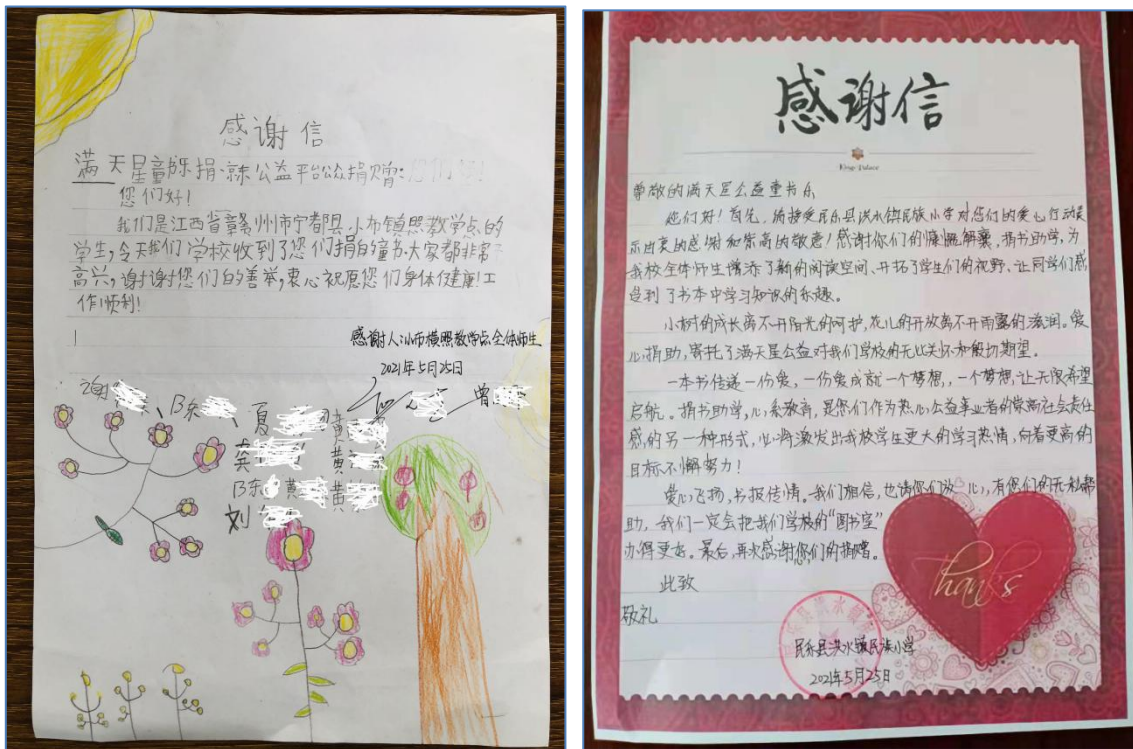 感谢信
满天星童书乐捐·京东公益平台公众捐赠:
您们好!
我们是江西省赣州市宁都县小布镇横照教学点的
学生,今天我们学校收到了您们捐的童书,大家都非常
高兴,谢谢您们的善举,衷心祝愿您们身体健康!工
作顺利!
感谢人:小布横照教学点全体师生
2021年5月25日
谢
陈
夏
曾
黄
陈 黄 黄
刘
感谢信
尊敬的满天星公益童书乐
您们好!首先,请接受民乐县洪水镇民族小学对您们的爱心行动表
示由衷的感谢和崇高的敬意!感谢你们的慷慨解囊,捐书助学,为
我校全体师生增添了新的阅读空间、开拓了学生们的视野、让同学们感
受到了书本中学习知识的乐趣。
小树的成长离不开阳光的呵护,花儿的开放离不开雨露的滋润。爱
心捐助,寄托了满天星公益对我们学校的无比关怀和殷切期望。
一本书传递一份爱,一份爱成就一个梦想,一个梦想,让无限希望
启航。捐书助学,心系教育,是您们作为热心公益事业者的崇高社会责任
感的另一种形式,必将激发出我校学生更大的学习热情,向着更高的
目标不懈努力!
爱心飞扬,书报传情。我们相信,也请你们放心,有您们的无私帮
助,我们一定会把我们学校的“图书室”
办得更好。最后,再次感谢您们的捐赠。
Thanks
此致
敬礼
民乐县洪水镇民族小学
2021年5月25日